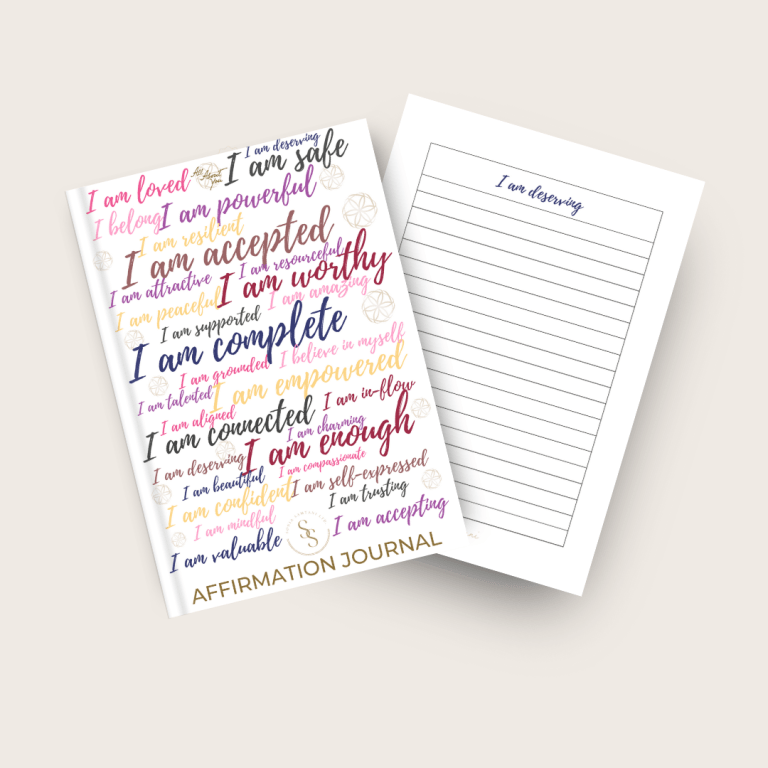 I am deserving
I am safe
I am loved
All About You
I am powerful
I belong
I am resilient
I am accepted
I am resourceful
I am attractive
I am worthy
I am amazing
I am peaceful
I am supported
I am complete
I believe in myself
I am grounded
I am empowered
I am talented
I am in-flow
I am aligned
I am connected
I am charming
I am enough
I am deserving
I am compassionate
I am beautiful
I am self-expressed
I am confident
I am trusting
I am mindful
I am accepting
I am valuable
SS
AFFIRMATION JOURNAL
I am deserving